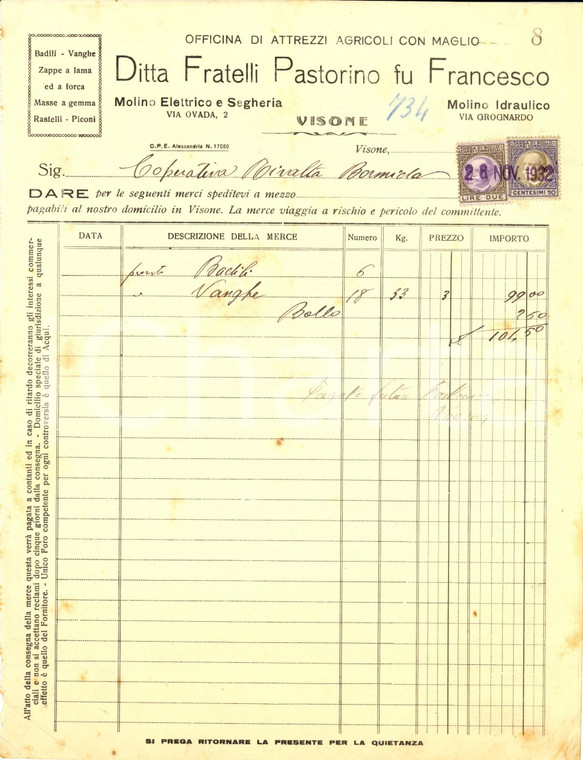 OFFICINA DI ATTREZZI AGRICOLI CON MAGLIO
8
Badili - Vanghe
Zappe a lama
ed a forca
Masse a gemma
Rastelli - Piconi
Ditta Fratelli Pastorino fu Francesco
Molino Elettrico e Segheria
VIA OVADA, 2
VISONE
734
Molino Idraulico
VIA GROGNARDO
C.P.E. Alessandria N. 17050
Visone,
28 NOV. 1932
LIRE DUE
CENTESIMI 50
Sig. Coperativa Rivalta Bormida
DARE per le seguenti merci speditevi a mezzo
pagabili al nostro domicilio in Visone. La merce viaggia a rischio e pericolo del committente.
DATA DESCRIZIONE DELLA MERCE Numero Kg. PREZZO IMPORTO
Badili 6
" Vanghe 18 33 3 99 00
Bollo 2 50
£ 101,50
All'atto della consegna della merce questa verrà pagata a contanti ed in caso di ritardo decorreranno gli interessi commer-
ciali e non si accettano reclami dopo cinque giorni dalla consegna. - Domicilio speciale di giurisdizione a qualunque
effetto è quello del Fornitore. - Unico Foro competente per ogni controversia è quello di Acqui.
SI PREGA RITORNARE LA PRESENTE PER LA QUIETANZA